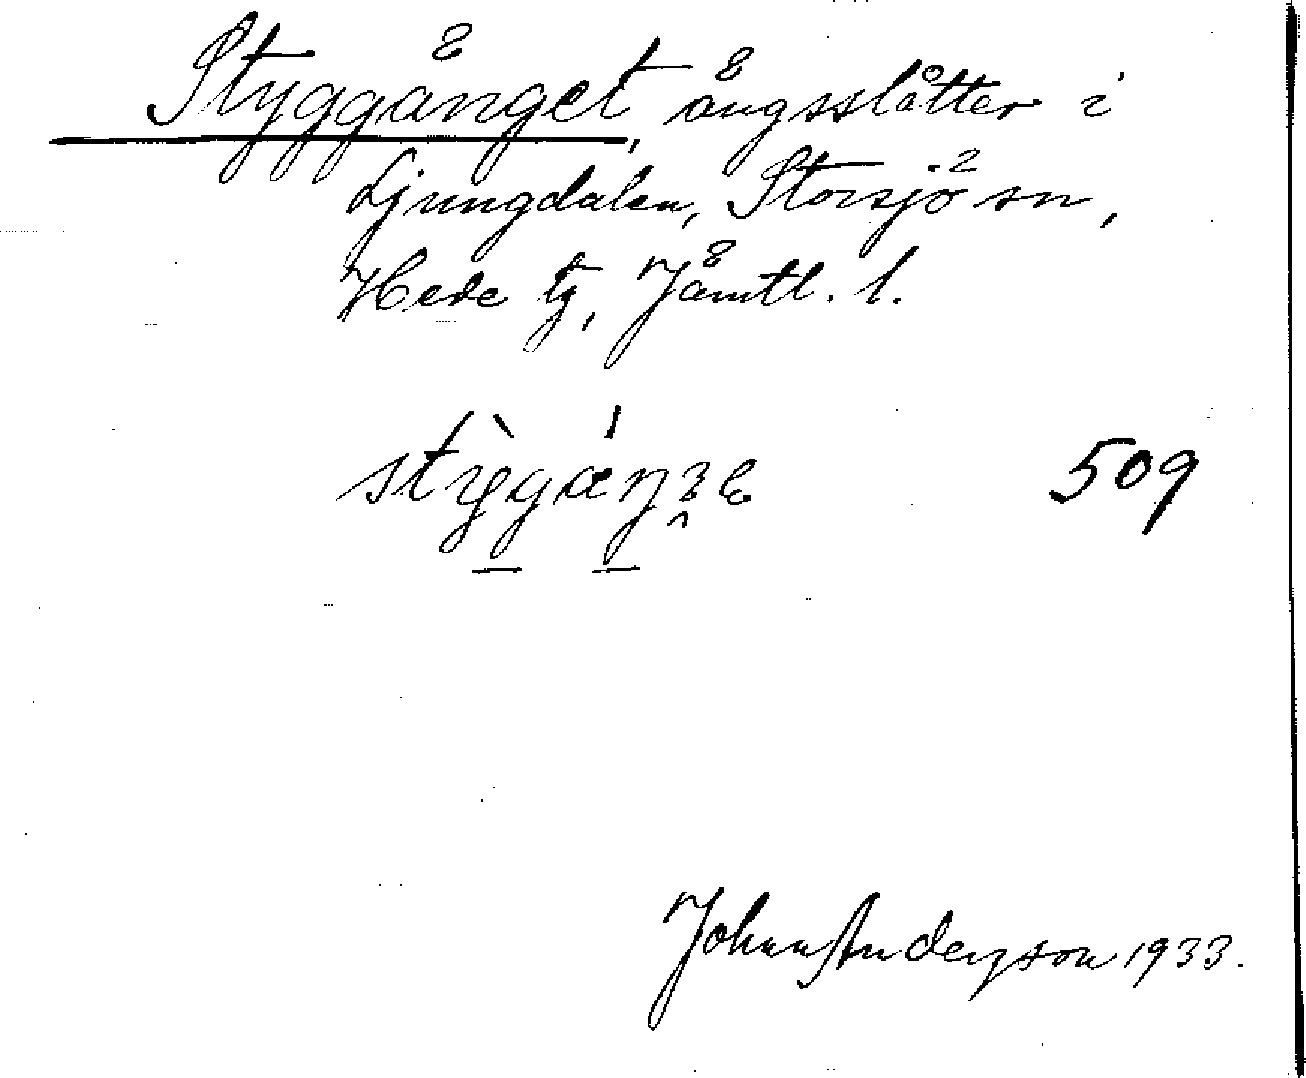 Styggänget, ängsslåtter i
Ljungdalen, Storsjö sn,
Hede tg, Jämtl. l.
509
Johan Anderson 1933.